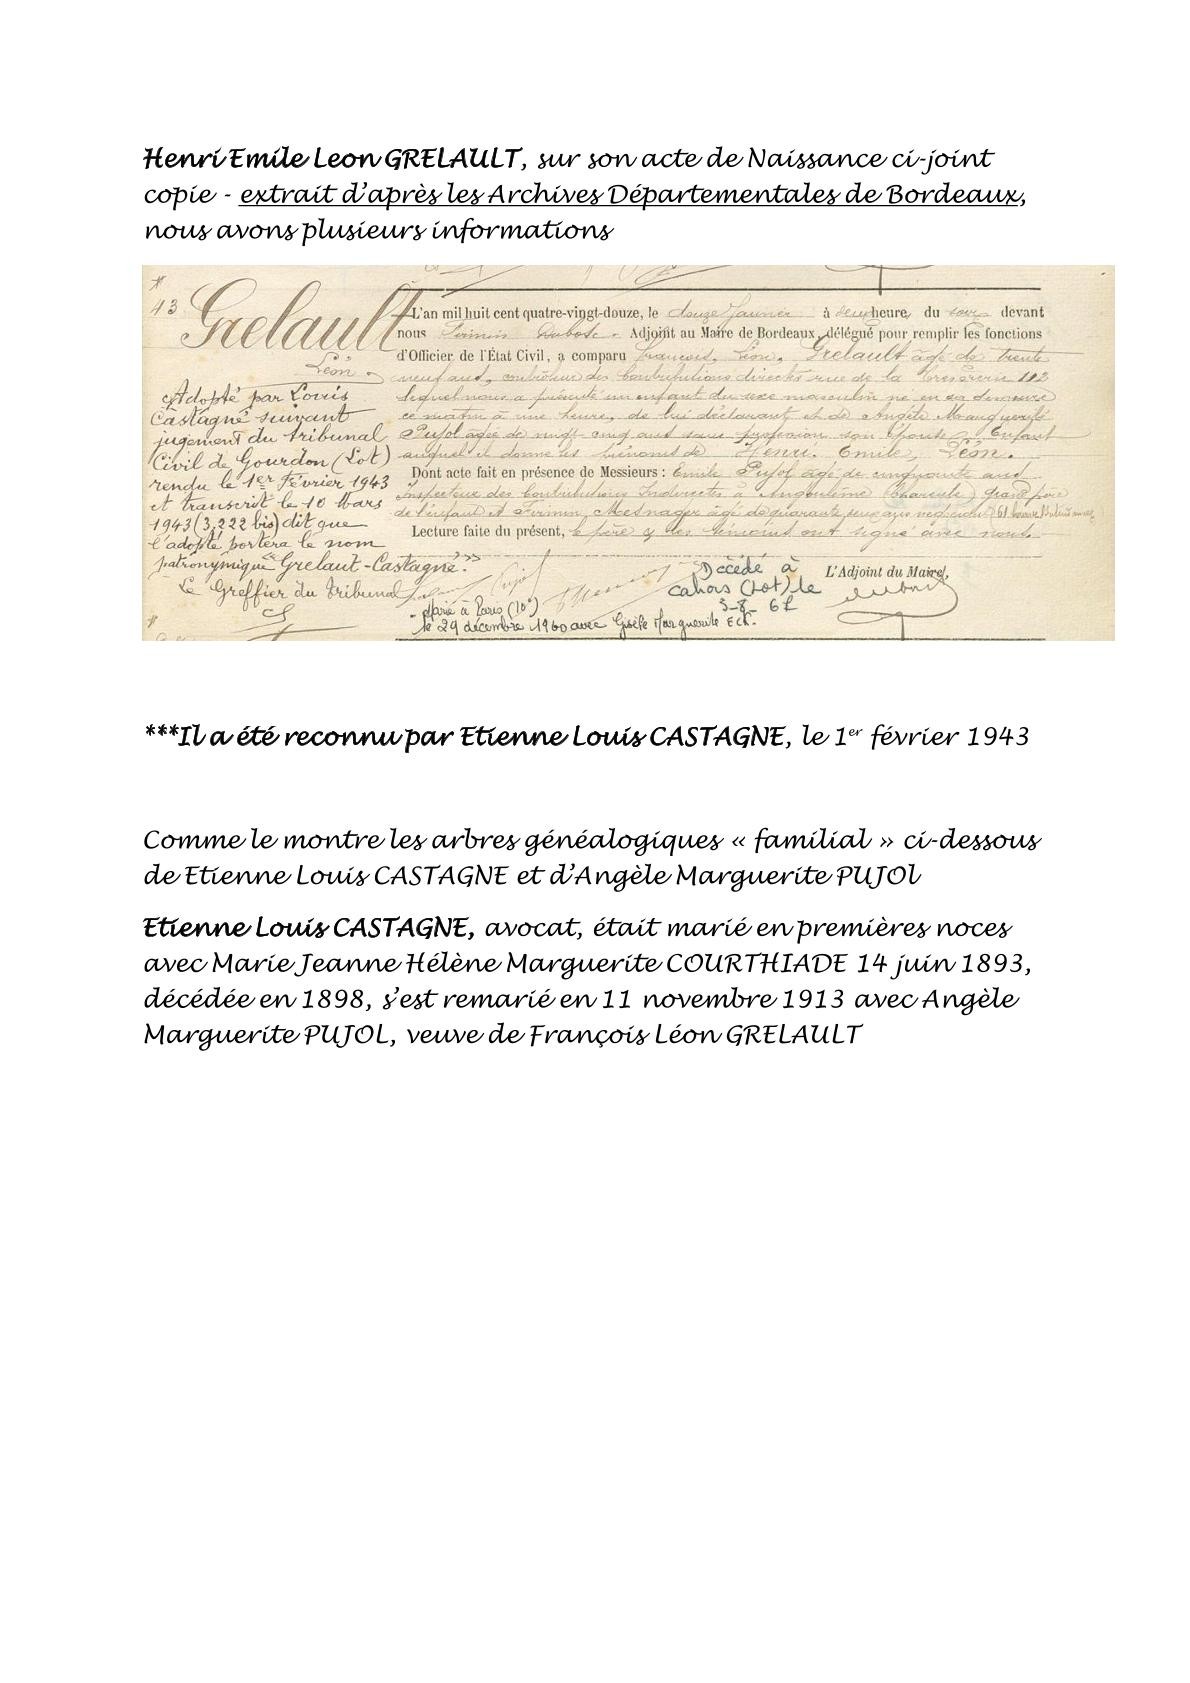 Henri Emile Leon GRELAULT, sur son acte de Naissance ci-joint
copie - extrait d'après les Archives Départementales de Bordeaux,
nous avons plusieurs informations
43
Grelault
Léon
Adopté par Louis
Castagné suivant
jugement du tribunal
Civil de Gourdon (Lot)
rendu le 1er Février 1943
et transcrit le 10 Mars
1943 (3,222 bis) dit que
l'adopté portera le nom
patronymique "Grelaut-Castagné."
Le Greffier du Tribunal
L'an mil huit cent quatre-vingt-douze, le douze Janvier à deux heure, du soir devant
nous Firmin Dubosc. Adjoint au Maire de Bordeaux, délégué pour remplir les fonctions
d'Officier de l'État Civil, a comparu François, Léon, Grelault âgé de trente
neuf ans, contrôleur des Contributions directes rue de la 113
lequel nous a présenté un enfant du sexe masculin né en sa demeure
ce matin à une heure, de lui déclarant et de Angèle Marguerite
Pujol âgée de vingt-cinq ans sans profession son épouse. Enfant
auquel il donne les prénoms de Henri. Emile, Léon.
Dont acte fait en présence de Messieurs : Emile Pujol âgé de cinquante ans
Inspecteur des Contributions Indirectes à Angoulême (Charente) grand père
de l'enfant et Firmin Mesnager âgé de quarante ans
Lecture faite du présent, le père & les témoins ont signé avec nous.
Pujol
Décédé à
Cahors (Lot) le
3-8-
L'Adjoint du Maire,
- Marié à Paris (10e)
le 29 décembre 1960 avec Gisèle Marguerite
***Il a été reconnu par Etienne Louis CASTAGNE, le 1er février 1943
Comme le montre les arbres généalogiques « familial » ci-dessous
de Etienne Louis CASTAGNE et d'Angèle Marguerite PUJOl
Etienne Louis CASTAGNE, avocat, était marié en premières noces
avec Marie Jeanne Hélène Marguerite COURTHIADE 14 juin 1893,
décédée en 1898, s'est remarié en 11 novembre 1913 avec Angèle
Marguerite PUJOL, veuve de François Léon GRELAULT